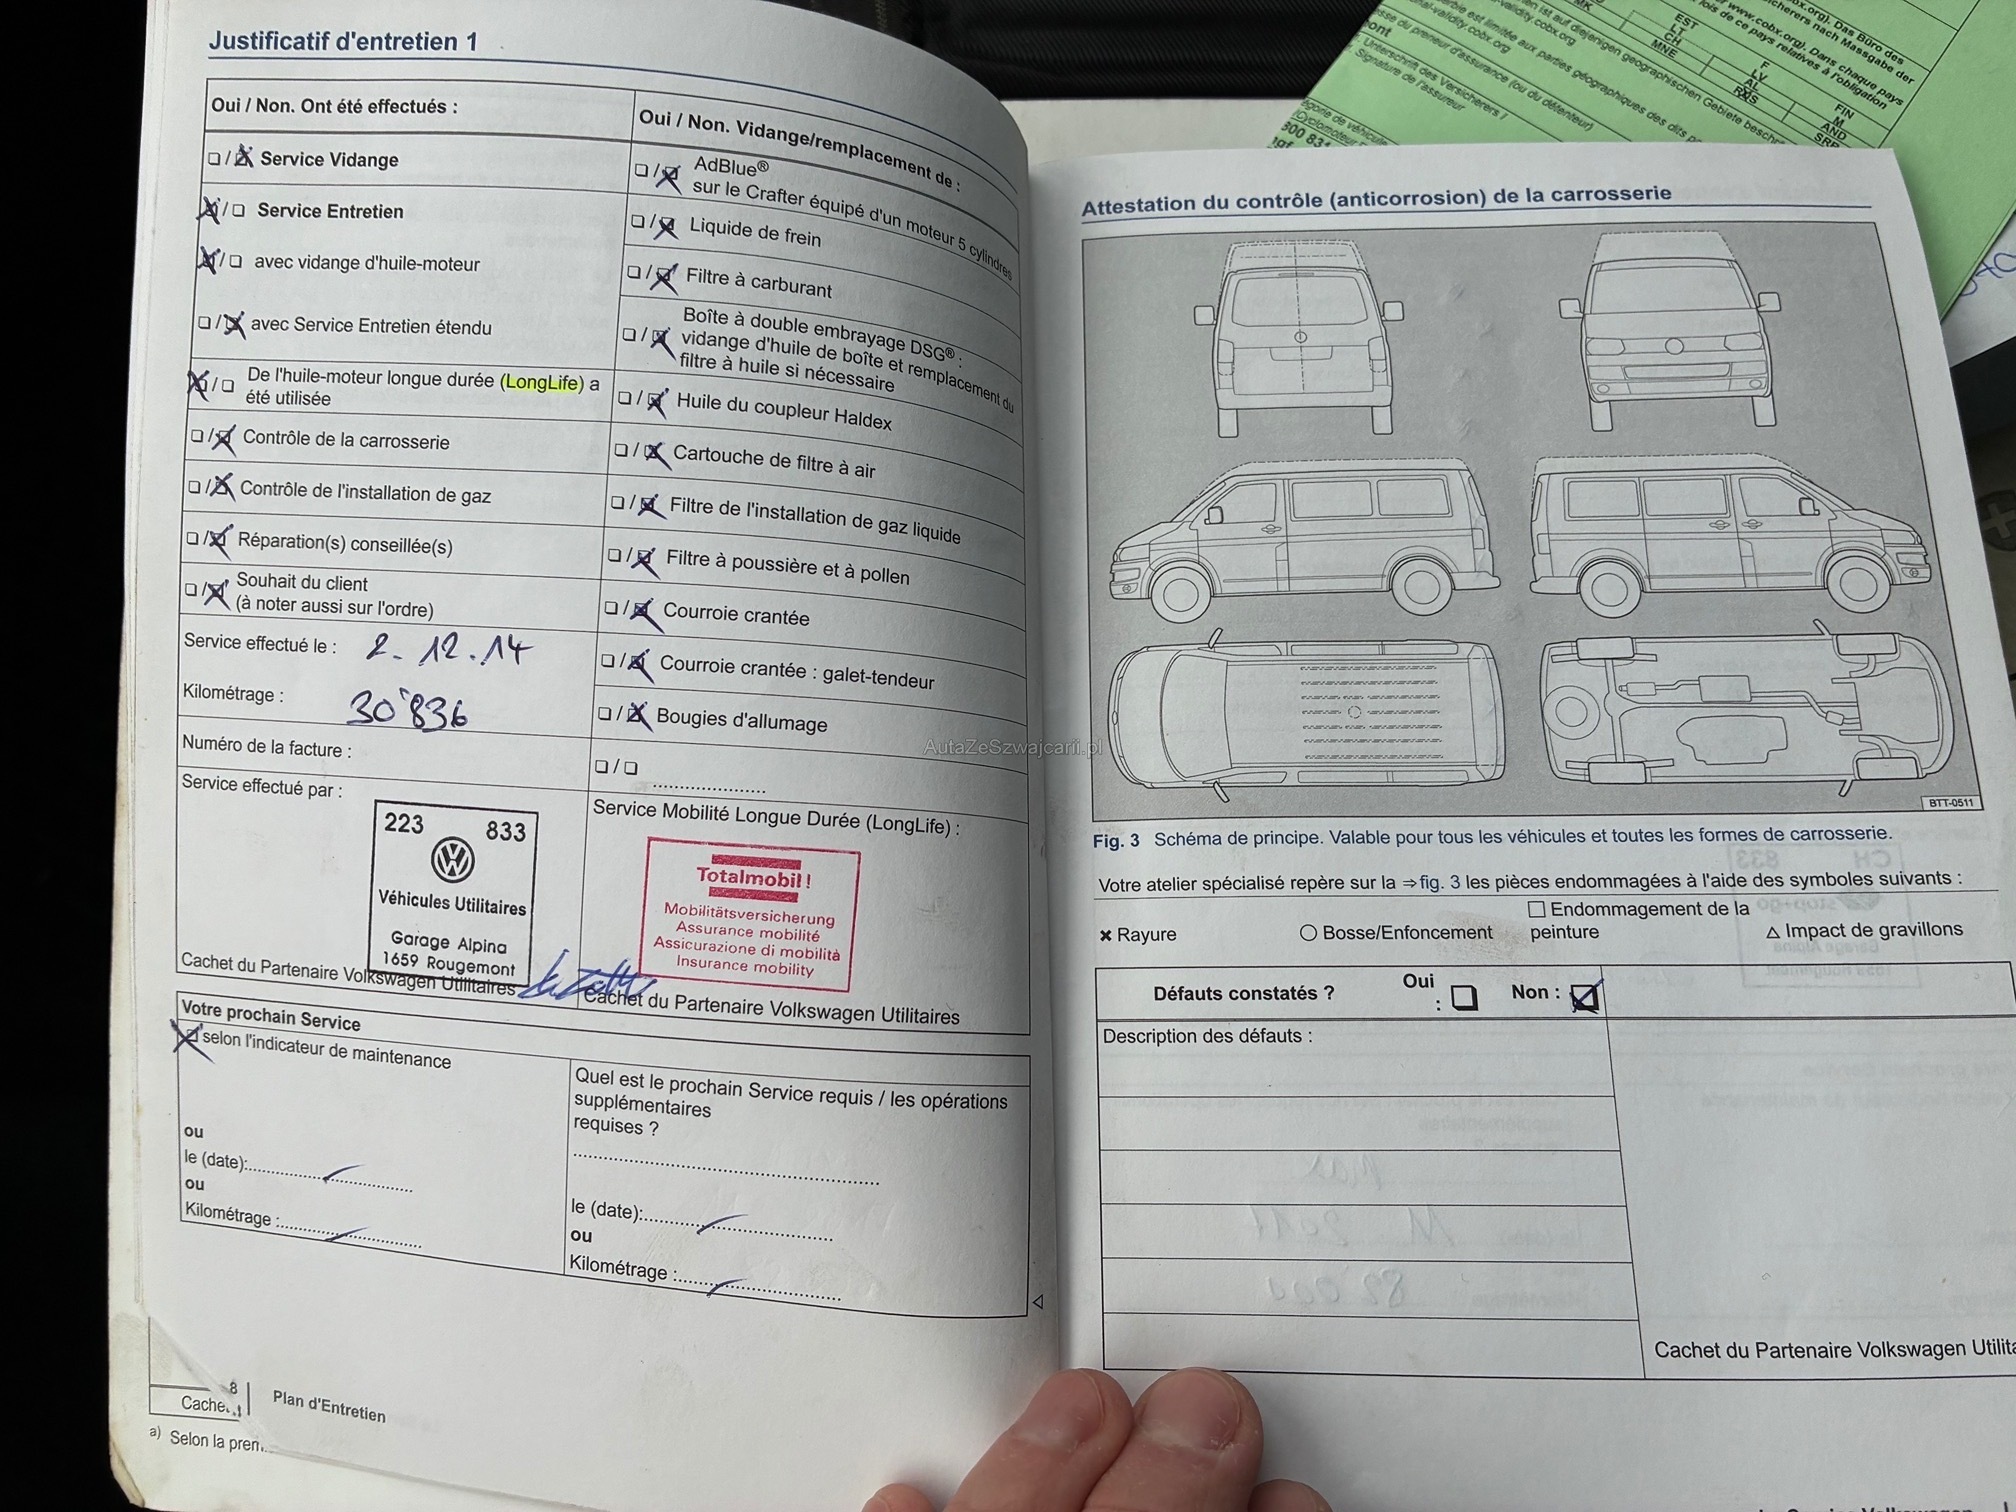 Justificatif d'entretien 1
Oui / Non. Ont été effectués :
❏ / ❏ Service Vidange
❏ / ❏ Service Entretien
❏ / ❏ avec vidange d'huile-moteur
❏ / ❏ avec Service Entretien étendu
❏ / ❏ De l'huile-moteur longue durée (LongLife) a
été utilisée
❏ / ❏ Contrôle de la carrosserie
❏ / ❏ Contrôle de l'installation de gaz
❏ / ❏ Réparation(s) conseillée(s)
❏ / ❏ Souhait du client
(à noter aussi sur l'ordre)
Service effectué le : 2.12.14
Kilométrage : 30'836
Numéro de la facture :
Service effectué par :
223 833
Véhicules Utilitaires
Garage Alpina
1659 Rougemont
Cachet du Partenaire Volkswagen Utilitaires
Oui / Non. Vidange/remplacement de :
❏ / ❏ AdBlue®
sur le Crafter équipé d'un moteur 5 cylindres
❏ / ❏ Liquide de frein
❏ / ❏ Filtre à carburant
❏ / ❏ Boîte à double embrayage DSG® :
vidange d'huile de boîte et remplacement du
filtre à huile si nécessaire
❏ / ❏ Huile du coupleur Haldex
❏ / ❏ Cartouche de filtre à air
❏ / ❏ Filtre de l'installation de gaz liquide
❏ / ❏ Filtre à poussière et à pollen
❏ / ❏ Courroie crantée
❏ / ❏ Courroie crantée : galet-tendeur
❏ / ❏ Bougies d'allumage
❏ / ❏ ......................
Service Mobilité Longue Durée (LongLife) :
Totalmobil!
Mobilitätsversicherung
Assurance mobilité
Assicurazione di mobilità
Insurance mobility
Cachet du Partenaire Volkswagen Utilitaires
Votre prochain Service
selon l'indicateur de maintenance
ou
le (date):
ou
Kilométrage :
Quel est le prochain Service requis / les opérations
supplémentaires
requises ?
le (date):
ou
Kilométrage :
8 Plan d'Entretien
a) Selon la prem
Attestation du contrôle (anticorrosion) de la carrosserie
BTT-0511
Fig. 3 Schéma de principe. Valable pour tous les véhicules et toutes les formes de carrosserie.
Votre atelier spécialisé repère sur la ⇒ fig. 3 les pièces endommagées à l'aide des symboles suivants :
× Rayure
○ Bosse/Enfoncement
☐ Endommagement de la
peinture
△ Impact de gravillons
Défauts constatés ? Oui : ☐ Non : ☑
Description des défauts :
Cachet du Partenaire Volkswagen
AutaZeSzwajcarii.pl